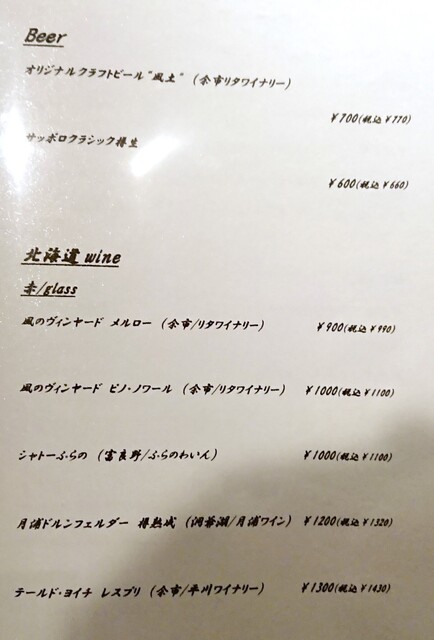 Beer
オリジナルクラフトビール"風土" (余市リタワイナリー)
¥700(税込 ¥770)
サッポロクラシック樽生
¥600(税込 ¥660)
北海道 wine
赤/glass
風のヴィンヤード メルロー (余市/リタワイナリー) ¥900(税込 ¥990)
風のヴィンヤード ピノ・ノワール (余市/リタワイナリー) ¥1000(税込 ¥1100)
シャトーふらの (富良野/ふらのわいん) ¥1000(税込 ¥1100)
月浦ドルンフェルダー 樽熟成 (洞爺湖/月浦ワイン) ¥1200(税込 ¥1320)
テールド・ヨイチ レスプリ (余市/平川ワイナリー) ¥1300(税込 ¥1430)